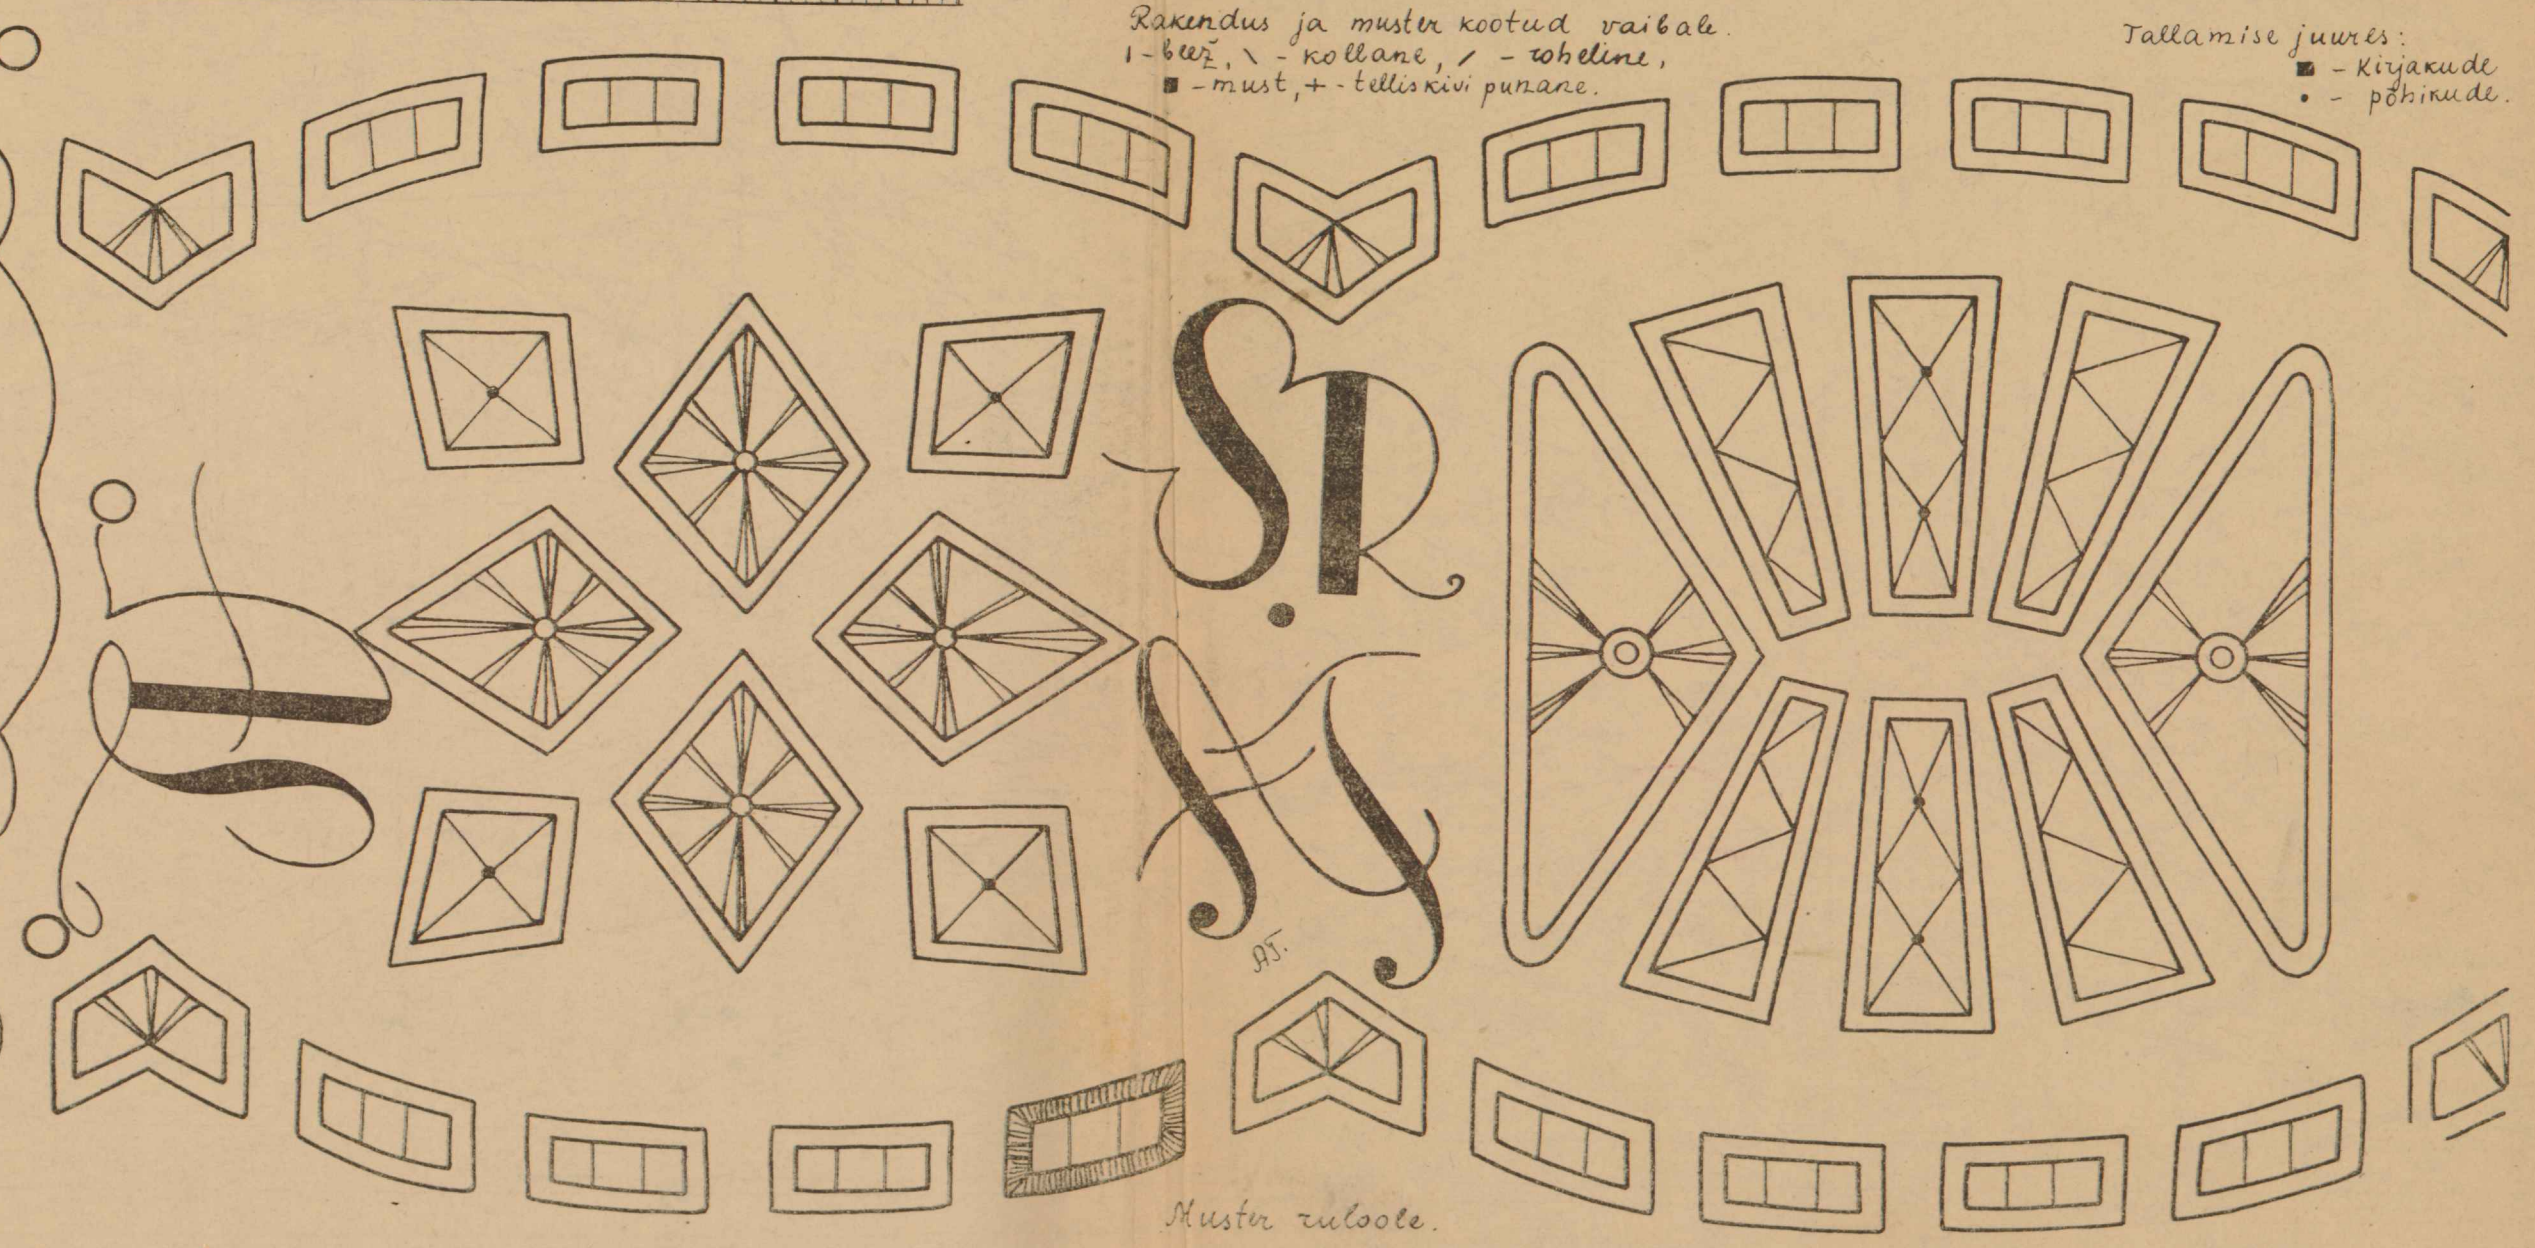 Rakendus ja muster kootud vaibale.
ı - beež, \ - kollane, / - roheline,
■ - must, + - telliskivi punane.
Tallamise juures:
■ - Kirjakude
• - põhikude.
SR
AT
AT.
Muster ruloole.